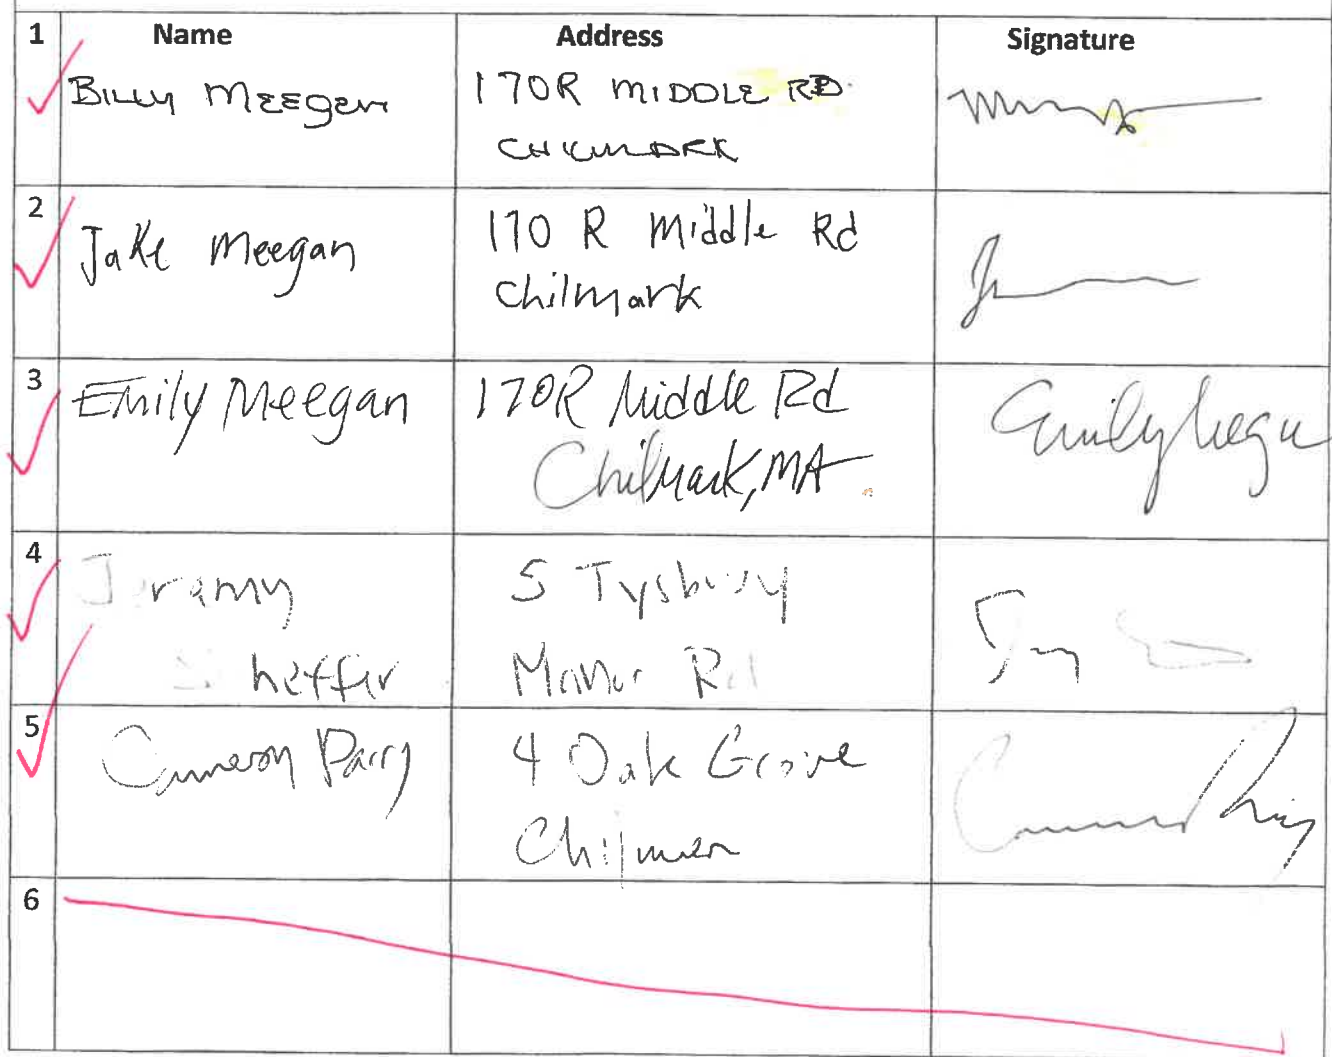 1 Name Address Signature
Billy Meegan 170R MIDDLE RD.
CHILMARK
2
Jake Meegan 170 R Middle Rd
Chilmark
3
Emily Meegan 170R Middle Rd
Chilmark, MA
Emily Meegan
4
5 Tysbury
heffer Manor Rd
5
Cameron Parry 4 Oak Grove
6